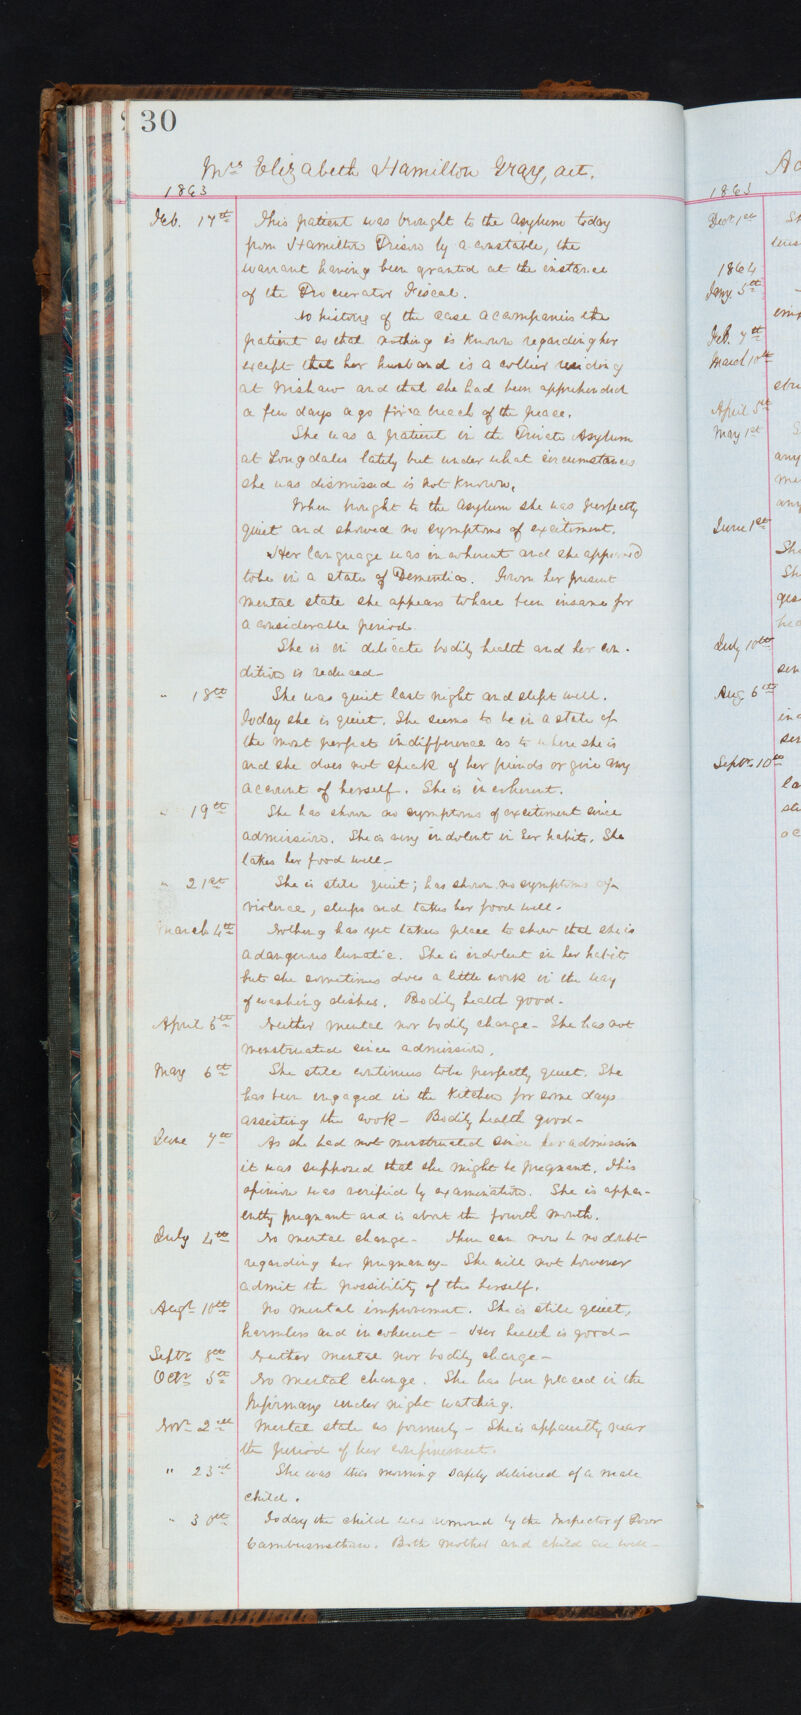 30
Mrs Elizabeth Hamilton Gray, aet.
1863
Feb. 17th This patient was brought to the Asylum today
from Hamilton Prison by a constable, the
warrant having been granted at the instance
of the Procurator Fiscal.
No history of the case accompanies the
patient so that nothing is known regarding her
except that her husband is a collier residing
at Wishaw and that she had been apprehended
a few days ago for a breach of the peace.
She was a patient in the Private Asylum
at Longdales lately but under what circumstances
she was dismissed is not known.
When brought to the Asylum she was perfectly
quiet and showed no symptoms of excitement.
Her language was incoherent and she appeared
to be in a state of Dementia. From her present
mental state she appears to have been insane for
a considerable period.
She is in delicate bodily health and her con-
dition is reduced
" 18th She was quiet last night and slept well.
Today she is quiet. She seems to be in a state of
the most perfect indifference as to where she is
and she does not speak of her friends or give any
account of herself. She is incoherent.
" 19th She has shown no symptoms of excitement since
admission. She is very indolent in her habits. She
takes her food well -
" 21st She is still quiet; has shown no symptoms of
violence, sleeps and takes her food well -
March 4th Nothing has yet taken place to show that she is
a dangerous lunatic. She is indolent in her habits
but she sometimes does a little work in the way
of washing dishes. Bodily health good -
April 6th Neither mental nor bodily change - She has not
menstruated since admission.
May 6th She still continues to be perfectly quiet. She
has been engaged in the kitchen for some days
assisting the cook - Bodily health good -
June 7th As she had not menstruated since her admission
it was supposed that she might be pregnant. This
opinion was verified by examination. She is appar-
ently pregnant and is about the fourth month.
July 4th No mental change - There can now be no doubt
regarding her pregnancy - She will not however
admit the possibility of this herself.
Augt 10th No mental improvement. She is still quiet,
harmless and incoherent - Her health is good -
Septr 8th Neither mental nor bodily change -
Octr 5th No mental change. She has been placed in the
Infirmary under night watching.
Novr 2nd Mental state as formerly - She is apparently near
the period of her confinement.
" 23rd She was this morning safely delivered of a male
child.
" 30th Today the child was removed by the Inspector of Poor
Cambusnethan. Both mother and child are well -
1863
Decr 1st
1864
Jany 5th
Feb. 7th
March 10th
April 5th
May 1st
June 1st
July 10th
Aug 6th
Septr 10th